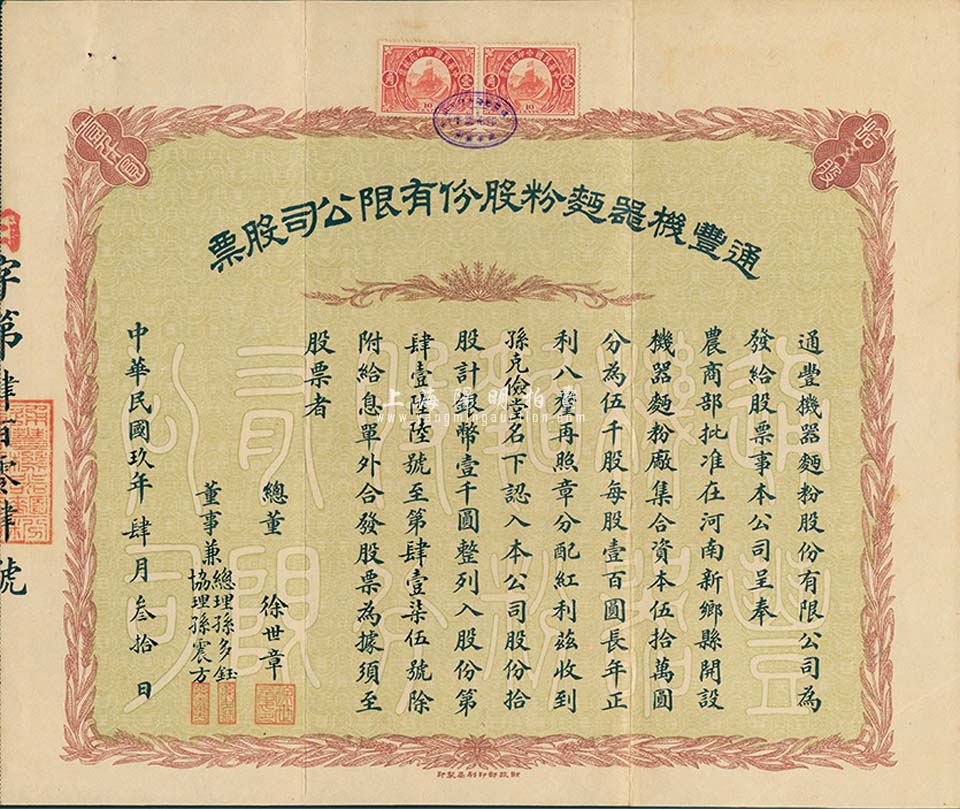 拾股
壹百圓
通豐機器麵粉股份有限公司股票
通豐機器麵粉股份有限公司為
發給股票事本公司呈奉
農商部批准在河南新鄉縣開設
機器麵粉廠集合資本伍拾萬圓
分為伍千股每股壹百圓長年正
利八釐再照章分配紅利茲收到
孫克儉堂名下認入本公司股份拾
股計銀幣壹千圓整列入股份第
肆壹陸陸號至第肆壹柒伍號除
附給息單外合發股票為據須至
股票者
總董 徐世章
董事兼
總理孫多鈺
協理孫震方
中華民國玖年肆月叁拾日
字第肆百零肆號
財政部印刷局製印
上海陽明拍賣
www.yangmingauction.com